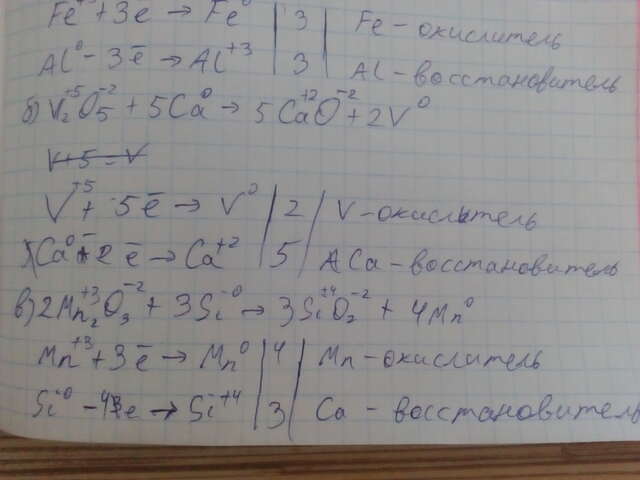 Fe⁺³ + 3ē → Fe⁰ | 3 | Fe - окислитель
Al⁰ - 3ē → Al⁺³ | 3 | Al - восстановитель
б) V₂⁺⁵O₅⁻² + 5Ca⁰ → 5Ca⁺²O⁻² + 2V⁰
V+5 = V
V⁺⁵ + 5ē → V⁰ | 2 | V - окислитель
Ca⁰ - 2ē → Ca⁺² | 5 | Ca - восстановитель
в) 2Mn₂⁺³O₃⁻² + 3Si⁰ → 3Si⁺⁴O₂⁻² + 4Mn⁰
Mn⁺³ + 3ē → Mn⁰ | 4 | Mn - окислитель
Si⁰ - 4ē → Si⁺⁴ | 3 | Ca - восстановитель